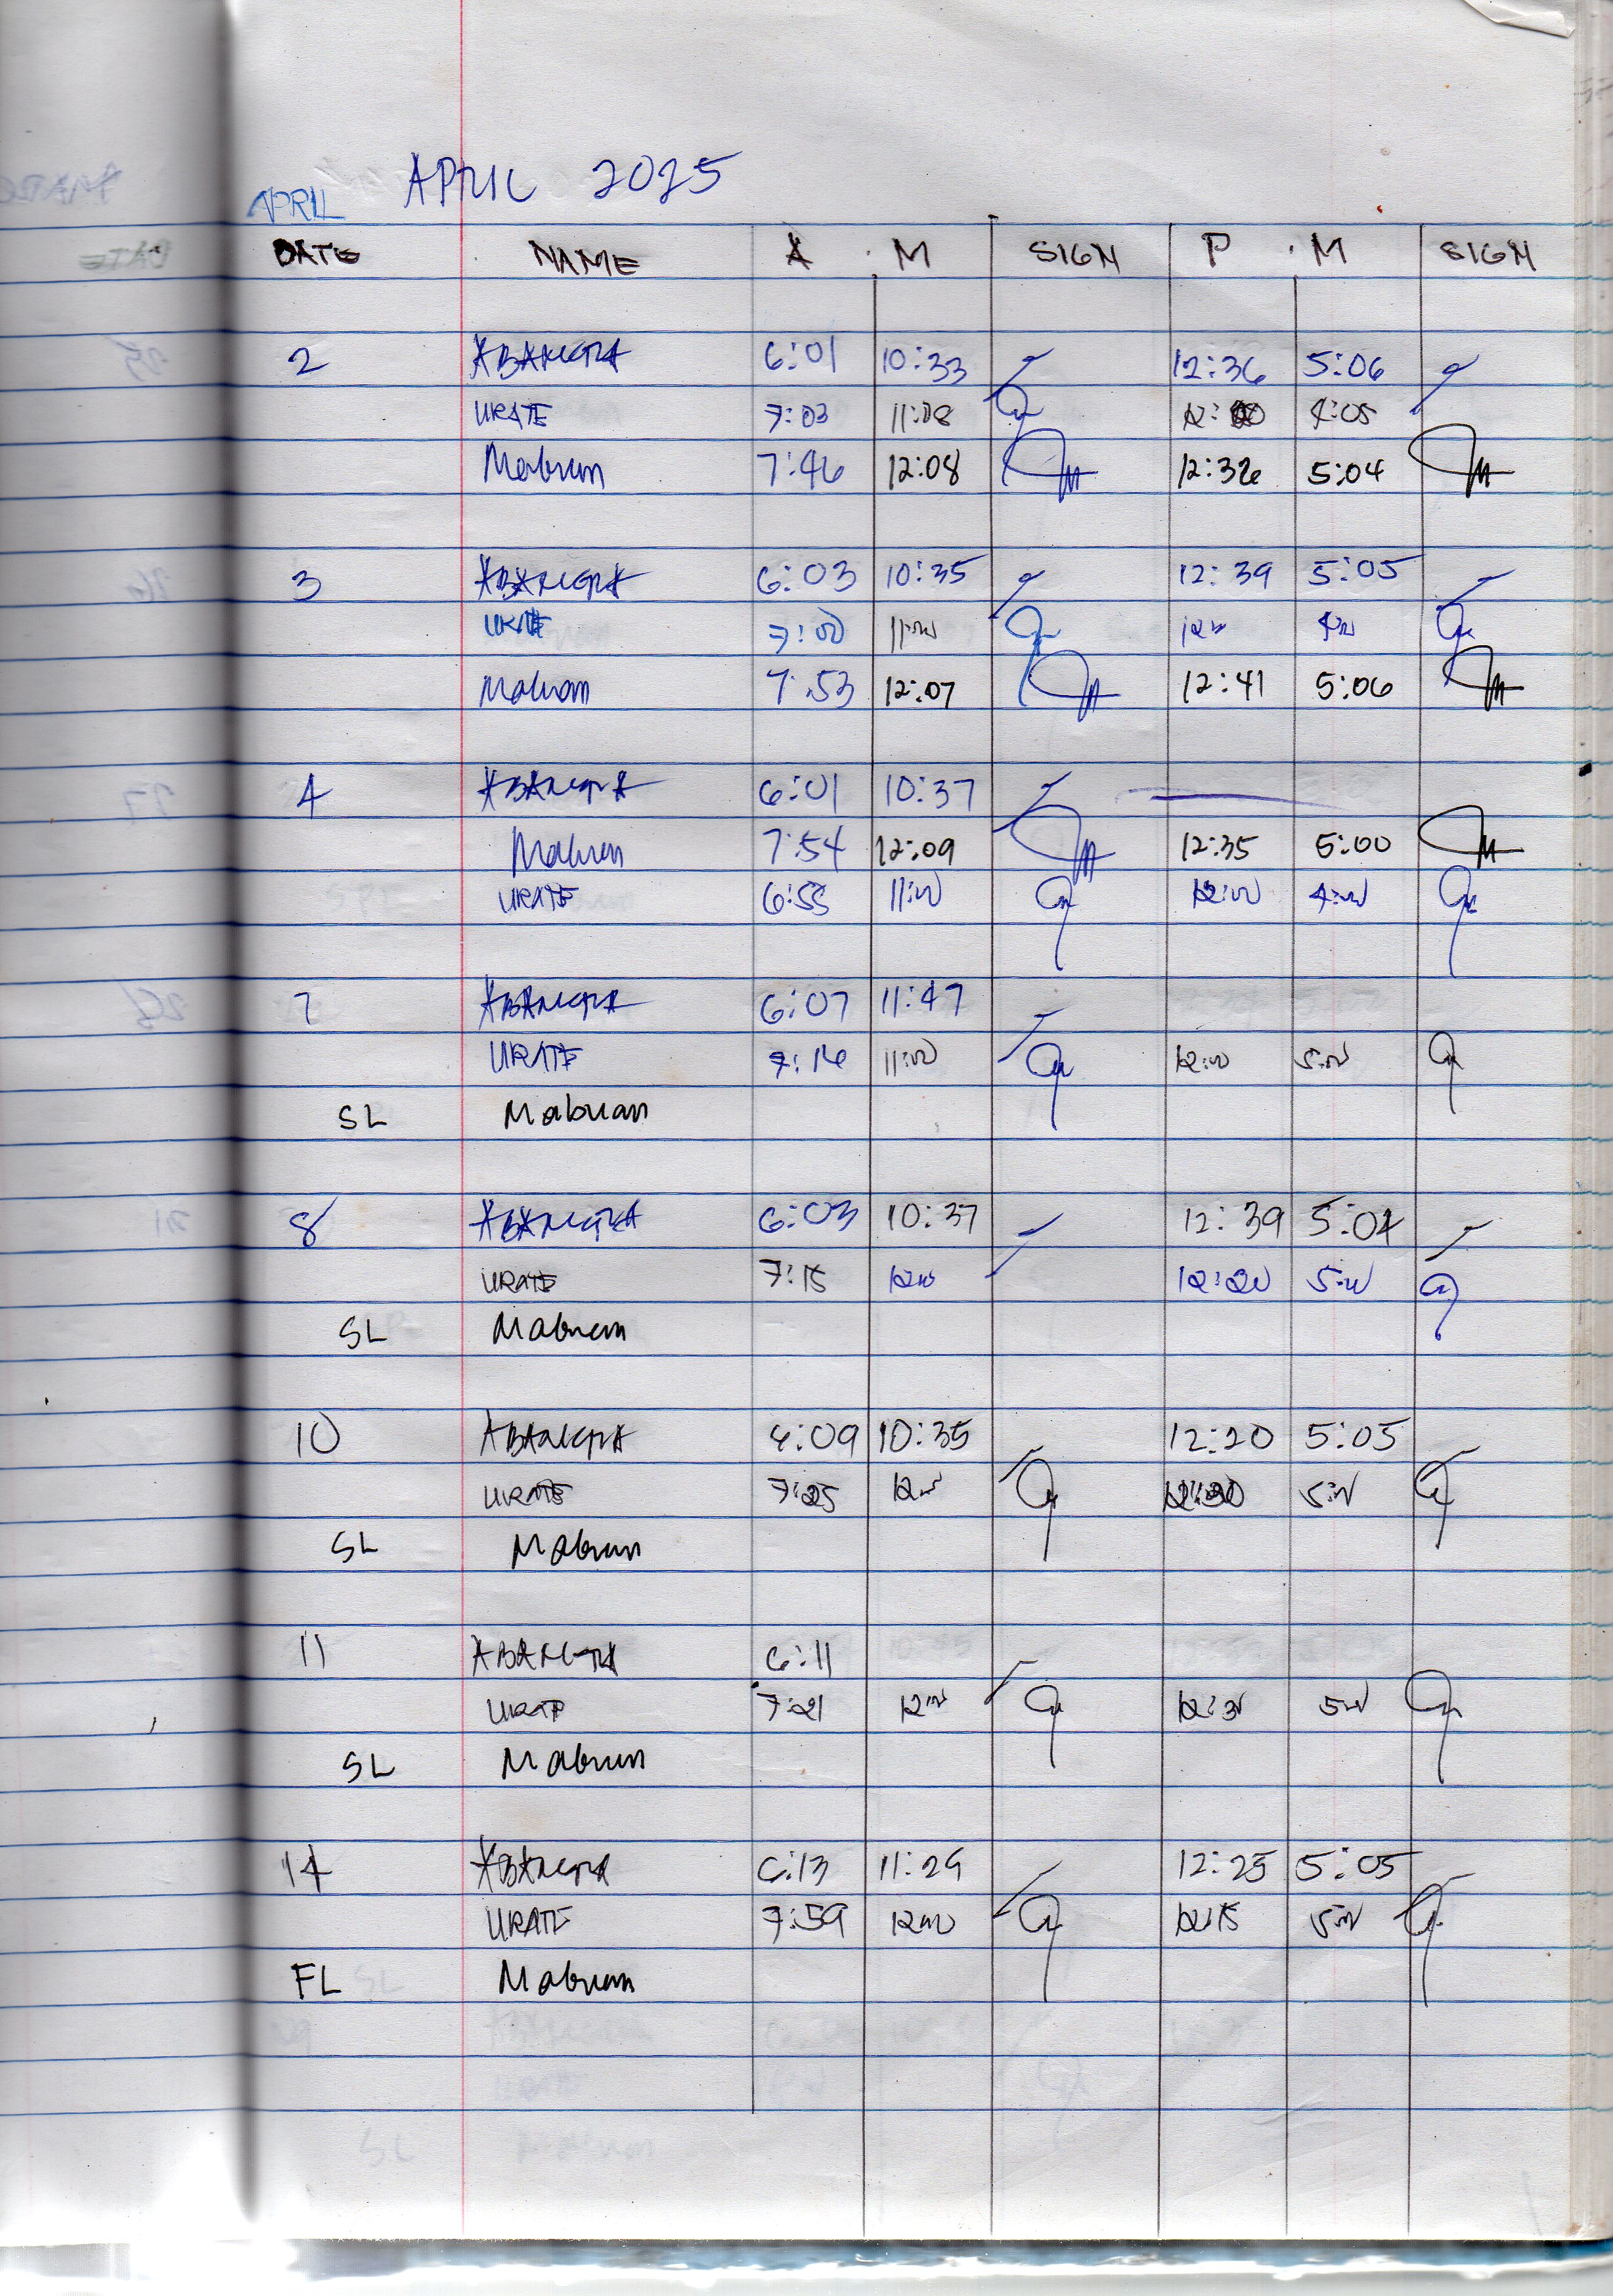 APRIL 2025
APRIL
DATE NAME A . M SIGN P . M SIGN
2 ABANGTA 6:01 10:33 12:36 5:06
URATE 7:03 11:08 12: 4:05
Mabuan 7:46 12:08 12:32 5:04
3 ABANGTA 6:03 10:35 12:39 5:05
URATE 7:00 11:00 12:00 4:00
Mabuan 7:53 12:07 12:41 5:06
4 ABANGTA 6:01 10:37
Mabuan 7:54 12:09 12:35 5:00
URATE 6:55 11:00 12:00 4:00
7 ABANGTA 6:07 11:47
URATE 7:16 11:00 12:00 5:00
SL Mabuan
8 ABANGTA 6:03 10:37 12:39 5:04
URATE 7:15 12:00 12:20 5:00
SL Mabuan
10 ABANGTA 6:09 10:35 12:20 5:05
URATE 7:25 12:00 5:00
SL Mabuan
11 ABANGTA 6:11
URATE 7:21 12:00 12:30 5:00
SL Mabuan
14 ABANGTA 6:13 11:29 12:25 5:05
URATE 7:59 12:00 12:15 5:00
FL Mabuan